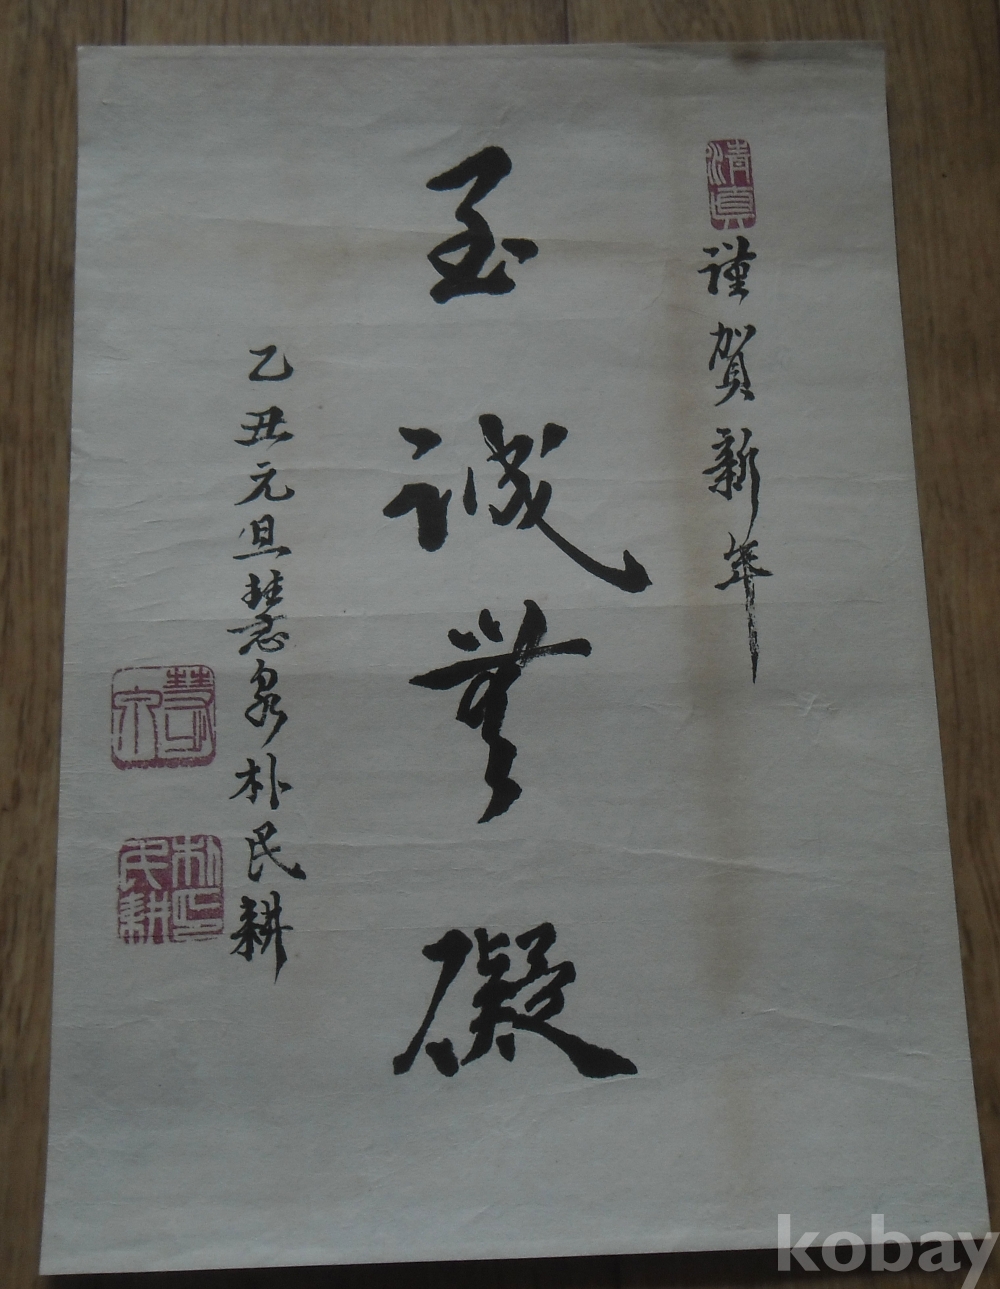 清眞
謹賀新年
至誠無礙
乙丑元旦慧泉朴民耕
慧泉
朴民耕印
kobay